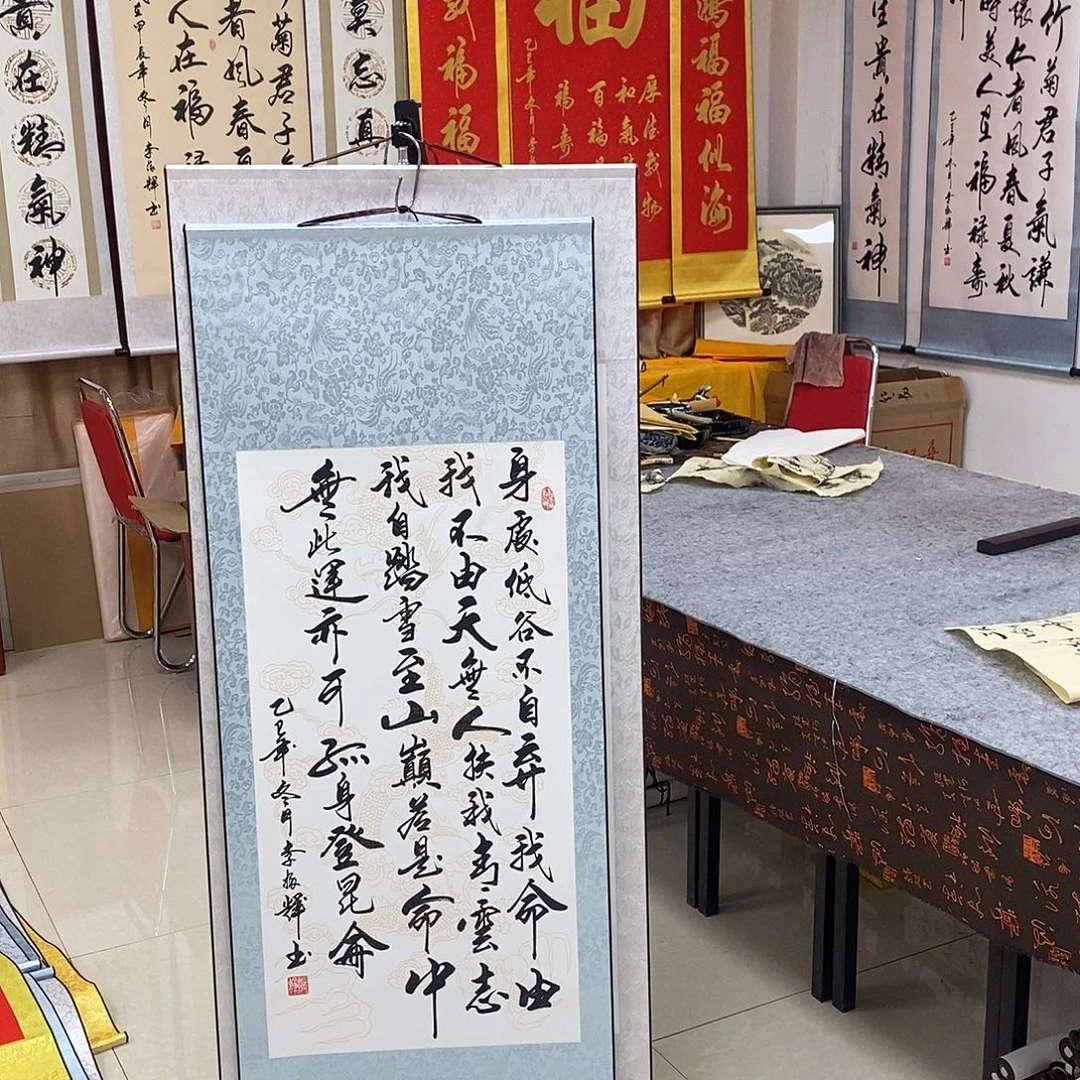 身處低谷不自弃我命由
我不由天無人扶我青雲志
我自踏雪至山巔若是命中
無此運亦可孤身登昆侖
乙巳年冬月李振輝书
竹菊君子氣謙
懷仁者風春夏秋
時美人畫福祿壽
乙巳年冬月李振輝书
生貴在精氣神
福福似海
厚德載物
和氣
百福
福壽
福
乙巳年冬月李
福福
忘真
菊君子
者風春夏
人在福祿
甲辰年冬月李振輝书
貴在精氣神